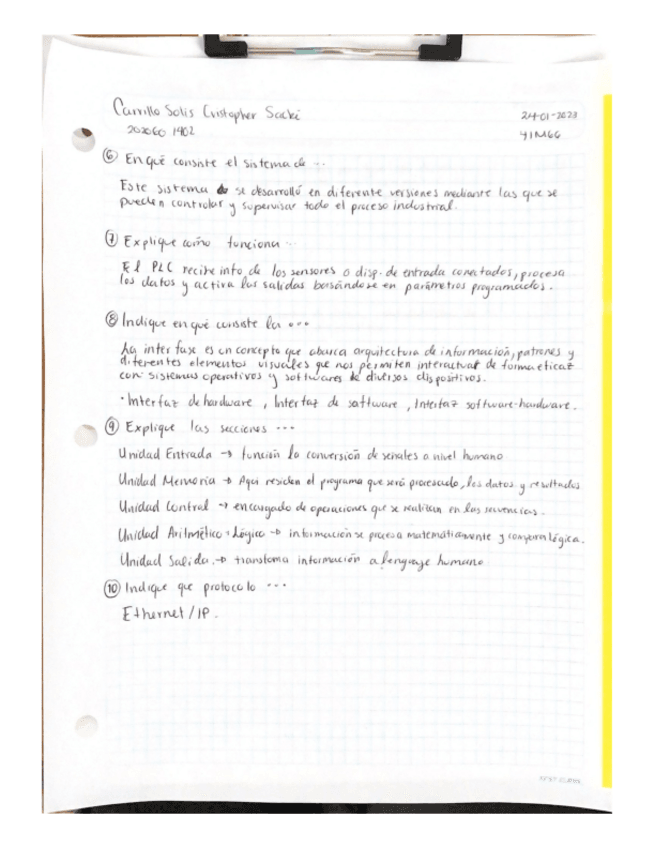 Carrillo Solis Cristopher Sacki
24-01-2023
202060 1402
41M66
⑥ En qué consiste el sistema de ...
Este sistema se desarrolló en diferente versiones mediante las que se
pueden controlar y supervisar todo el proceso industrial.
⑦ Explique como funciona ...
El PLC recibe info de los sensores o disp. de entrada conectados, procesa
los datos y activa las salidas basándose en parámetros programados.
⑧ Indique en qué consiste la ...
La interfase es un concepto que abarca arquitectura de información, patrones y
diferentes elementos visuales que nos permiten interactuar de forma eficaz
con sistemas operativos y softwares de diversos dispositivos.
· Interfaz de hardware , Interfaz de software , Interfaz software-hardware.
⑨ Explique las secciones ...
Unidad Entrada → función la conversión de señales a nivel humano
Unidad Memoria → Aqui residen el programa que será procesado, los datos y resultados
Unidad Control → encargado de operaciones que se realizan en las secuencias.
Unidad Aritmético-Lógico → información se procesa matemáticamente y lógica.
Unidad Salida → transforma información a lenguaje humano
⑩ Indique que protocolo ...
Ethernet/IP.